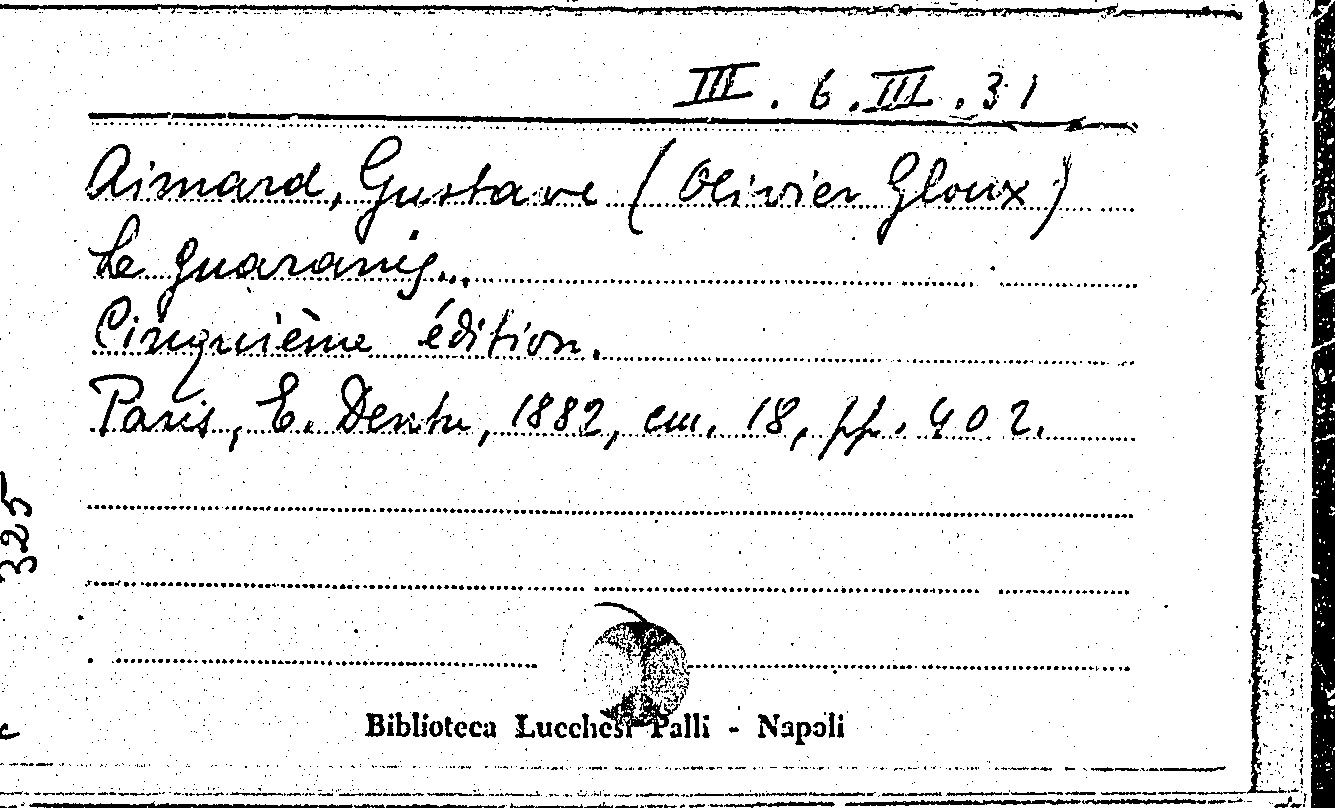 III. 6. III. 31
Aimard, Gustave (Olivier Gloux)
Le guaranis...
Cinquième édition.
Paris, E. Dentu, 1882, cm. 18, pp. 402.
325
Biblioteca Lucchesi Palli - Napoli